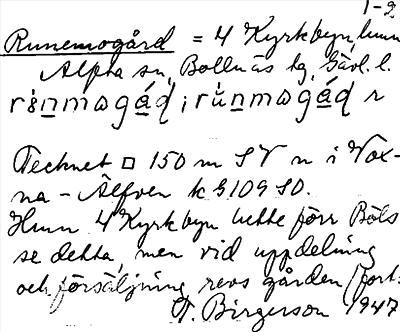 1-2
Runemogård = 4 Kyrkbyn, hmn
Alfta sn, Bollnäs tg, Gävl. l.
Tecknet □ 150 m SV n i Vox-
na-Älfven k G 109 SO.
Hmn 4 Kyrkbyn hette förr Böls
se detta, men vid uppdelning
och försäljning revs gården (fort.
T. Birgerson 1947